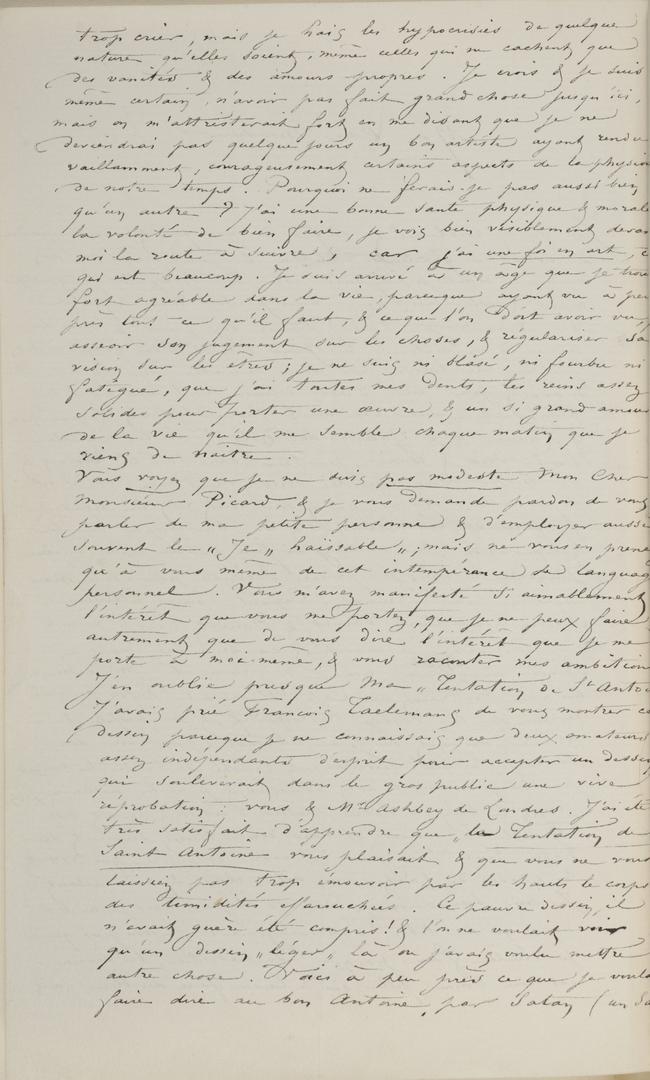 trop crier, mais je hais les hypocrisies de quelque
nature qu'elles soient, même celles qui ne cachent que
des vanités & des amours propres. Je crois & je suis
même certain, n'avoir pas fait grand chose jusqu'ici,
mais on m'attristerait fort en me disant que je ne
deviendrai pas quelque jours un bon artiste ayant rendu
vaillamment, courageusement certains aspects de la physio
de notre temps. Pourquoi ne ferais-je pas aussi bien
qu'un autre ? J'ai une bonne santé physique & morale
la volonté de bien faire, je vois bien visiblement deva
moi la route à suivre, car j'ai une foi en art, c
qui est beaucoup. Je suis arrivé à un âge que je trou
fort agréable dans la vie, parceque ayant vu à peu
près tout ce qu'il faut, & ce que l'on doit avoir vu,
asseoir son jugement sur les choses, & régulariser sa
vision sur les êtres ; je ne suis ni blasé, ni fourbu ni
fatigué, que j'ai toutes mes dents, les reins assez
solides pour porter une œuvre, & un si grand amour
de la vie qu'il me semble chaque matin que je
viens de naître.
Vous voyez que je ne suis pas modeste Mon Cher
Monsieur Picard, & je vous demande pardon de vous
parler de ma petite personne & d'employer aussi
souvent le „Je „ haïssable „ ; mais ne vous en prene
qu'à vous même de cet intempérance de languag
personnel. Vous m'avez manifesté si aimablement
l'intérêt que vous me portez, que je ne peux faire
autrement que de vous dire l'intérêt que je me
porte à moi-même, & vous raconter mes ambition
J'en oublie presque Ma „ Tentation de St Antoi
J'avais prié François Taelemans de vous montrer ce
dessin parceque je ne connaissais que deux amateurs
assez indépendants d'esprit pour accepter un dessin
qui soulèverait dans le gros public une vive
réprobation : vous & Mr Ashbey de Londres. J'ai été
très satisfait d'apprendre que „la Tentation de
Saint Antoine vous plaisait & que vous ne vous
laissiez pas trop émouvoir par les hauts le corps
des timidités effarouchées. Ce pauvre dessin, il
n'avait guère été compris ! & l'on ne voulait voir
qu'un dessin „ léger „ là ou j'avais voulu mettre
autre chose. Voici à peu près ce que je voula
faire dire au bon Antoine, par Satan (un Sa